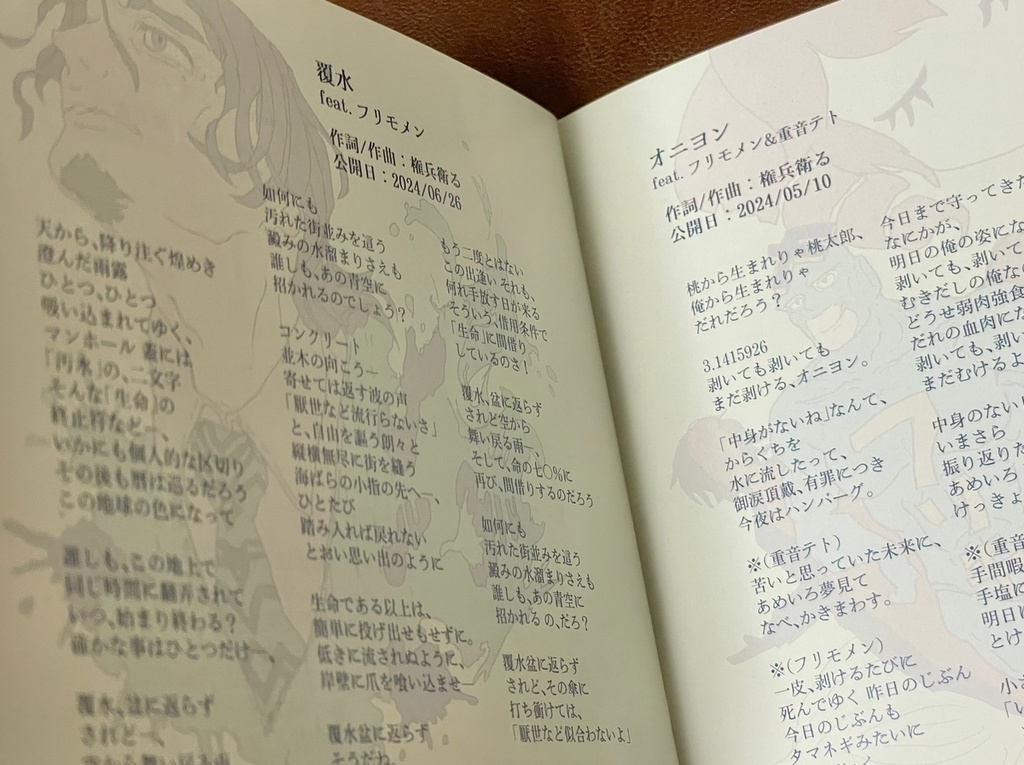 覆水
feat. フリモメン
作詞/作曲：権兵衛る
公開日：2024/06/26
天から、降り注ぐ煌めき
澄んだ雨露
ひとつ、ひとつ
吸い込まれてゆく、
マンホール 蓋には
「汚水」の、二文字
そんな「生命」の
終止符などー、
いかにも個人的な区切り
その後も暦は巡るだろう
この地球の色になって
誰しも、この地上で
同じ時間に翻弄されて
いつ、始まり終わる？
確かな事はひとつだけー、
覆水、盆に返らず
されどー、
空から舞い戻る雨
如何にも
汚れた街並みを這う
澱みの水溜まりさえも
誰しも、あの青空に
招かれるのでしょう？
コンクリート
並木の向こうー
寄せては返す波の声
「厭世など流行らないさ」
と、自由を謳う朗々と
縦横無尽に街を縫う
海ばらの小指の先へー、
ひとたび
踏み入れば戻れない
とおい思い出のように
生命である以上は、
簡単に投げ出せもせずに。
低きに流されぬように、
岸壁に爪を喰い込ませ
覆水盆に返らず
そうだね、
もう二度とはない
この出逢い それも、
何れ手放す日が来る
そういう、借用条件で
「生命」に間借り
しているのさ！
覆水、盆に返らず
されど空から
舞い戻る雨ー、
そして、命の七〇％に
再び、間借りするのだろう
如何にも
汚れた街並みを這う
澱みの水溜まりさえも
誰しも、あの青空に
招かれる の、だろ？
覆水盆に返らず
されど、その傘に
打ち衝けては、
「厭世など似合わないよ」
オニヨン
feat. フリモメン&重音テト
作詞/作曲：権兵衛る
公開日：2024/05/10
桃から生まれりゃ桃太郎、
俺から生まれりゃ
だれだろう？
3.1415926
剥いても剥いても
まだ剥ける、オニヨン。
「中身がないね」なんて、
からくちを
水に流したって、
御涙頂戴、有罪につき
今夜はハンバーグ。
※（重音テト）
苦いと思っていた未来に、
あめいろ夢見て
なべ、かきまわす。
※（フリモメン）
一皮、剥けるたびに
死んでゆく 昨日のじぶん
今日のじぶんも
タマネギみたいに
今日まで守ってきた
なにかが、
明日の俺の姿にな
剥いても、剥いて
むきだしの俺な
どうせ弱肉強食
だれの血肉にた
剥いても、剥い
まだむけるよ
中身のない
いまさら
振り返りた
あめいろ
けっきょ
※（重音
手間暇
手塩に
明日
とけ
小さ
「い